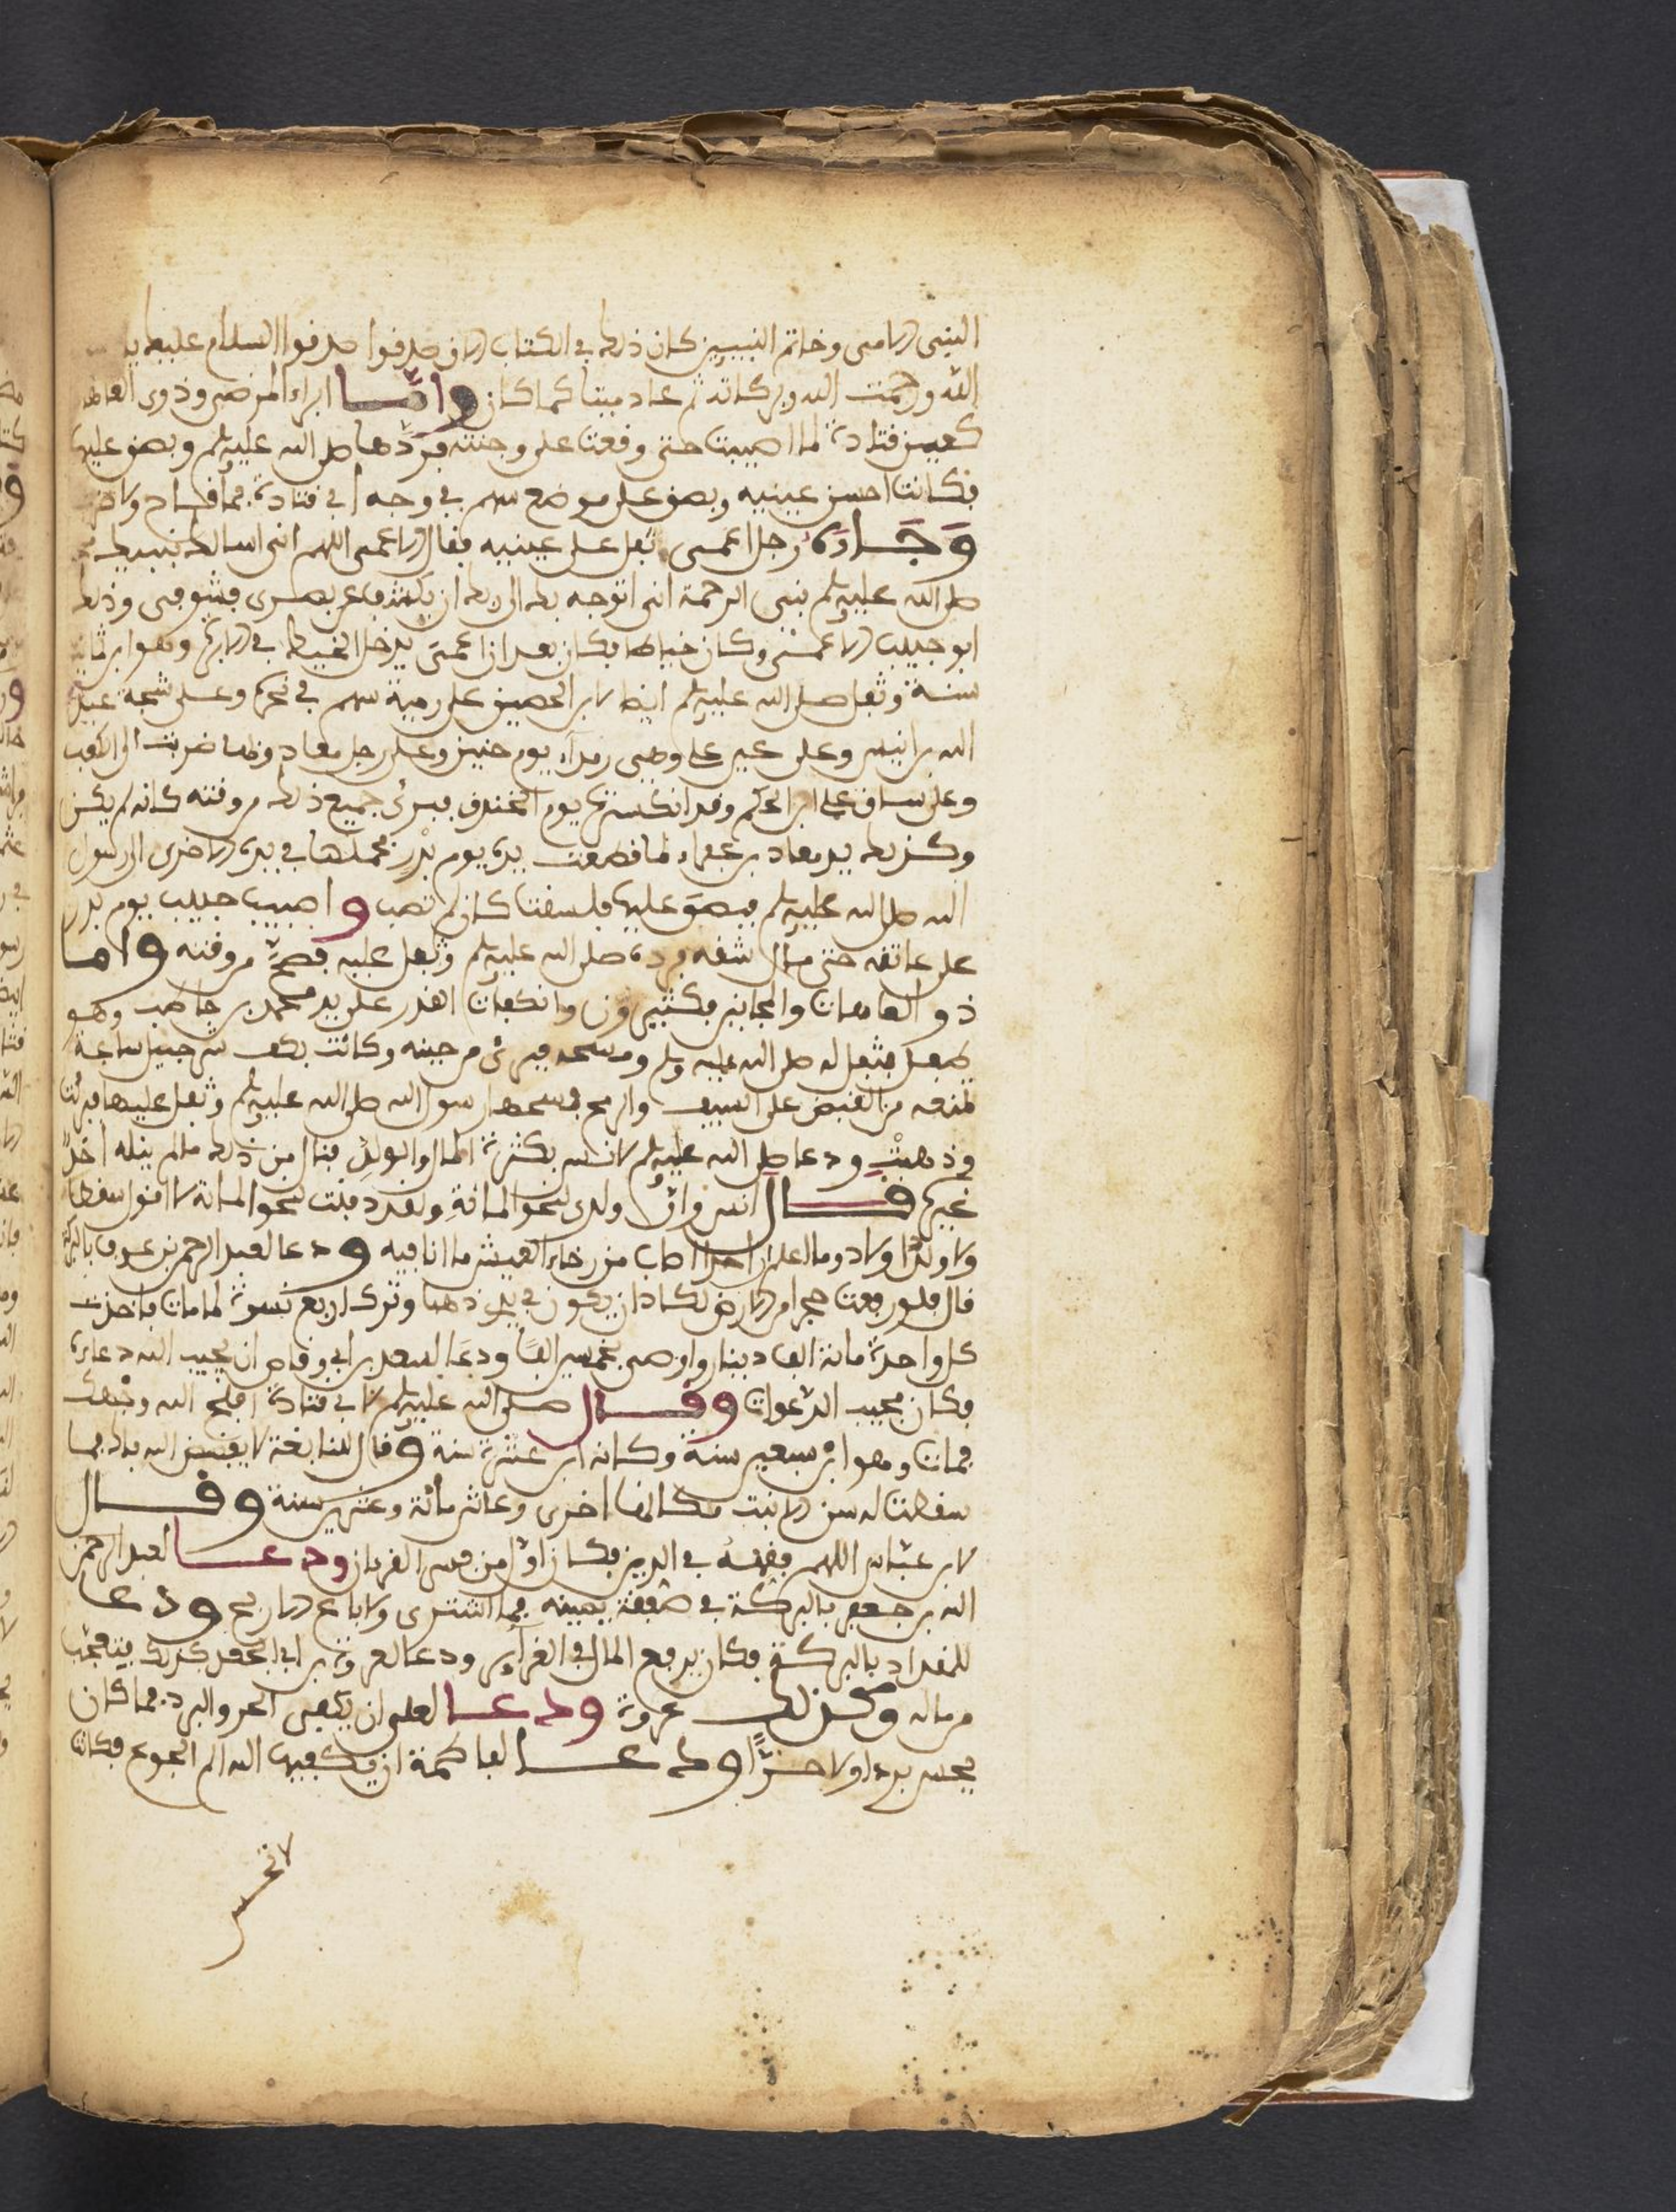 النبى الامى وخاتم النبيين كان ذلك في الكتاب الاول صدقوا صدقوا السلام عليك يا
الله ورحمت الله وبركاته ثم عاد ميتا كما كان وامّا ابراء المرضى وذوى العاهات
كعين قتادة لما اصيبت حتى وقعت على وجنته فردّها صلى الله عليه وسلم وبصق عليها
فكانت احسن عينيه وبصق على موضع سهم في وجه ابي قتادة فما قاح ولا ضرب
وَجَاءَهُ رجل اعمى تفل على عينيه فقال الاعمى اللهم انى اسالك بنبيك محمد
صلى الله عليه وسلم نبى الرحمة انى اتوجه بك الى ربك ان يكشف عن بصرى فشوفى وذلك
ابو حبيب الاعمى وكان خياطا فكان بعد ان اعمى يدخل الخيط في الابرة وهو ابن ثمانين
سنة وتفل صلى الله عليه وسلم ايضا لابن الحصين على رمية سهم في نحره وعلى شجة عبد
الله بن انيس وعلى عين علي وهى رمداء يوم حنين وعلى رجل معاذ وقد ضربت الى الكعب
وعلى ساق علي ابن الحكم وقد انكسرت يوم الخندق فبرئ جميع ذلك من وقته كانه لم يكن
وكذلك يد معاذ بن عفراء لما قطعت يده يوم بدر فحملها في يده الاخرى الى رسول
الله صلى الله عليه وسلم فبصق عليها فلصقت كان لم تصب واصيب حبيب يوم بدر
على عاتقه حتى مال شقه فرده صلى الله عليه وسلم وتفل عليه فصحّ من وقته واما
ذو العاهات والمجانين فكثيرون وانكفات القدر على يد محمد بن حاطب وهو
طفل فتفل له صلى الله عليه وسلم ومسحه فبرئ من حينه وكانت بكف شرحبيل سلعة
تمنعه من القبض على السيف والرمح فمسحها رسول الله صلى الله عليه وسلم وتفل عليها فبرئت
وذهبت ودعا صلى الله عليه وسلم لانس بكثرة المال والولد فنال من ذلك مالم ينله احدٌ
غيره قال انس وانّ ولدى لنحو المائة ولقد دفنت نحو المائة لا اقول سقطا
ولا ولد اولاد وما اعلم ان احدا اصاب من رخاء العيش ما انا فيه ودعا لعبد الرحمن بن عوف بالبركة
قال فلو رفعت حجرا من الارض لكاد ان يكون في يدى ذهبا وترك اربع نسوة لما مات فاخذت
كل واحدة مائة الف دينار واوصى بخمسين الفا ودعا لسعد بن ابي وقاص ان يجيب الله دعاءه
فكان مجيب الدعوات وقال صلى الله عليه وسلم لابي قتادة افلح الله وجهك
فمات وهو ابن سبعين سنة وكانه ابن عشرة سنة وقال للنابغة لا يفضض الله فاك فما
سقطت له سن الا نبت مكانها اخرى وعاش مائة وعشرين سنة وقال
لابن عباس اللهم فقهه في الدين فكان اول من فسر القرءان ودعا لعبد الرحمن
الله بن جعفر بالبركة في صفقة يمينه فما اشترى ولا باع الا ربح ودعا
للمقداد بالبركة فكان يرفع المال في الغرائر ودعا لعروة بن ابي الجعد كذلك يتعجب
من ماله وكذلك عروة ودعا لعلى ان يكفى الحر والبرد فما كان
يحس بردا ولا حرًّا ودعا لفاطمة ان يكفيها الله الم الجوع فكانت
لا تحس